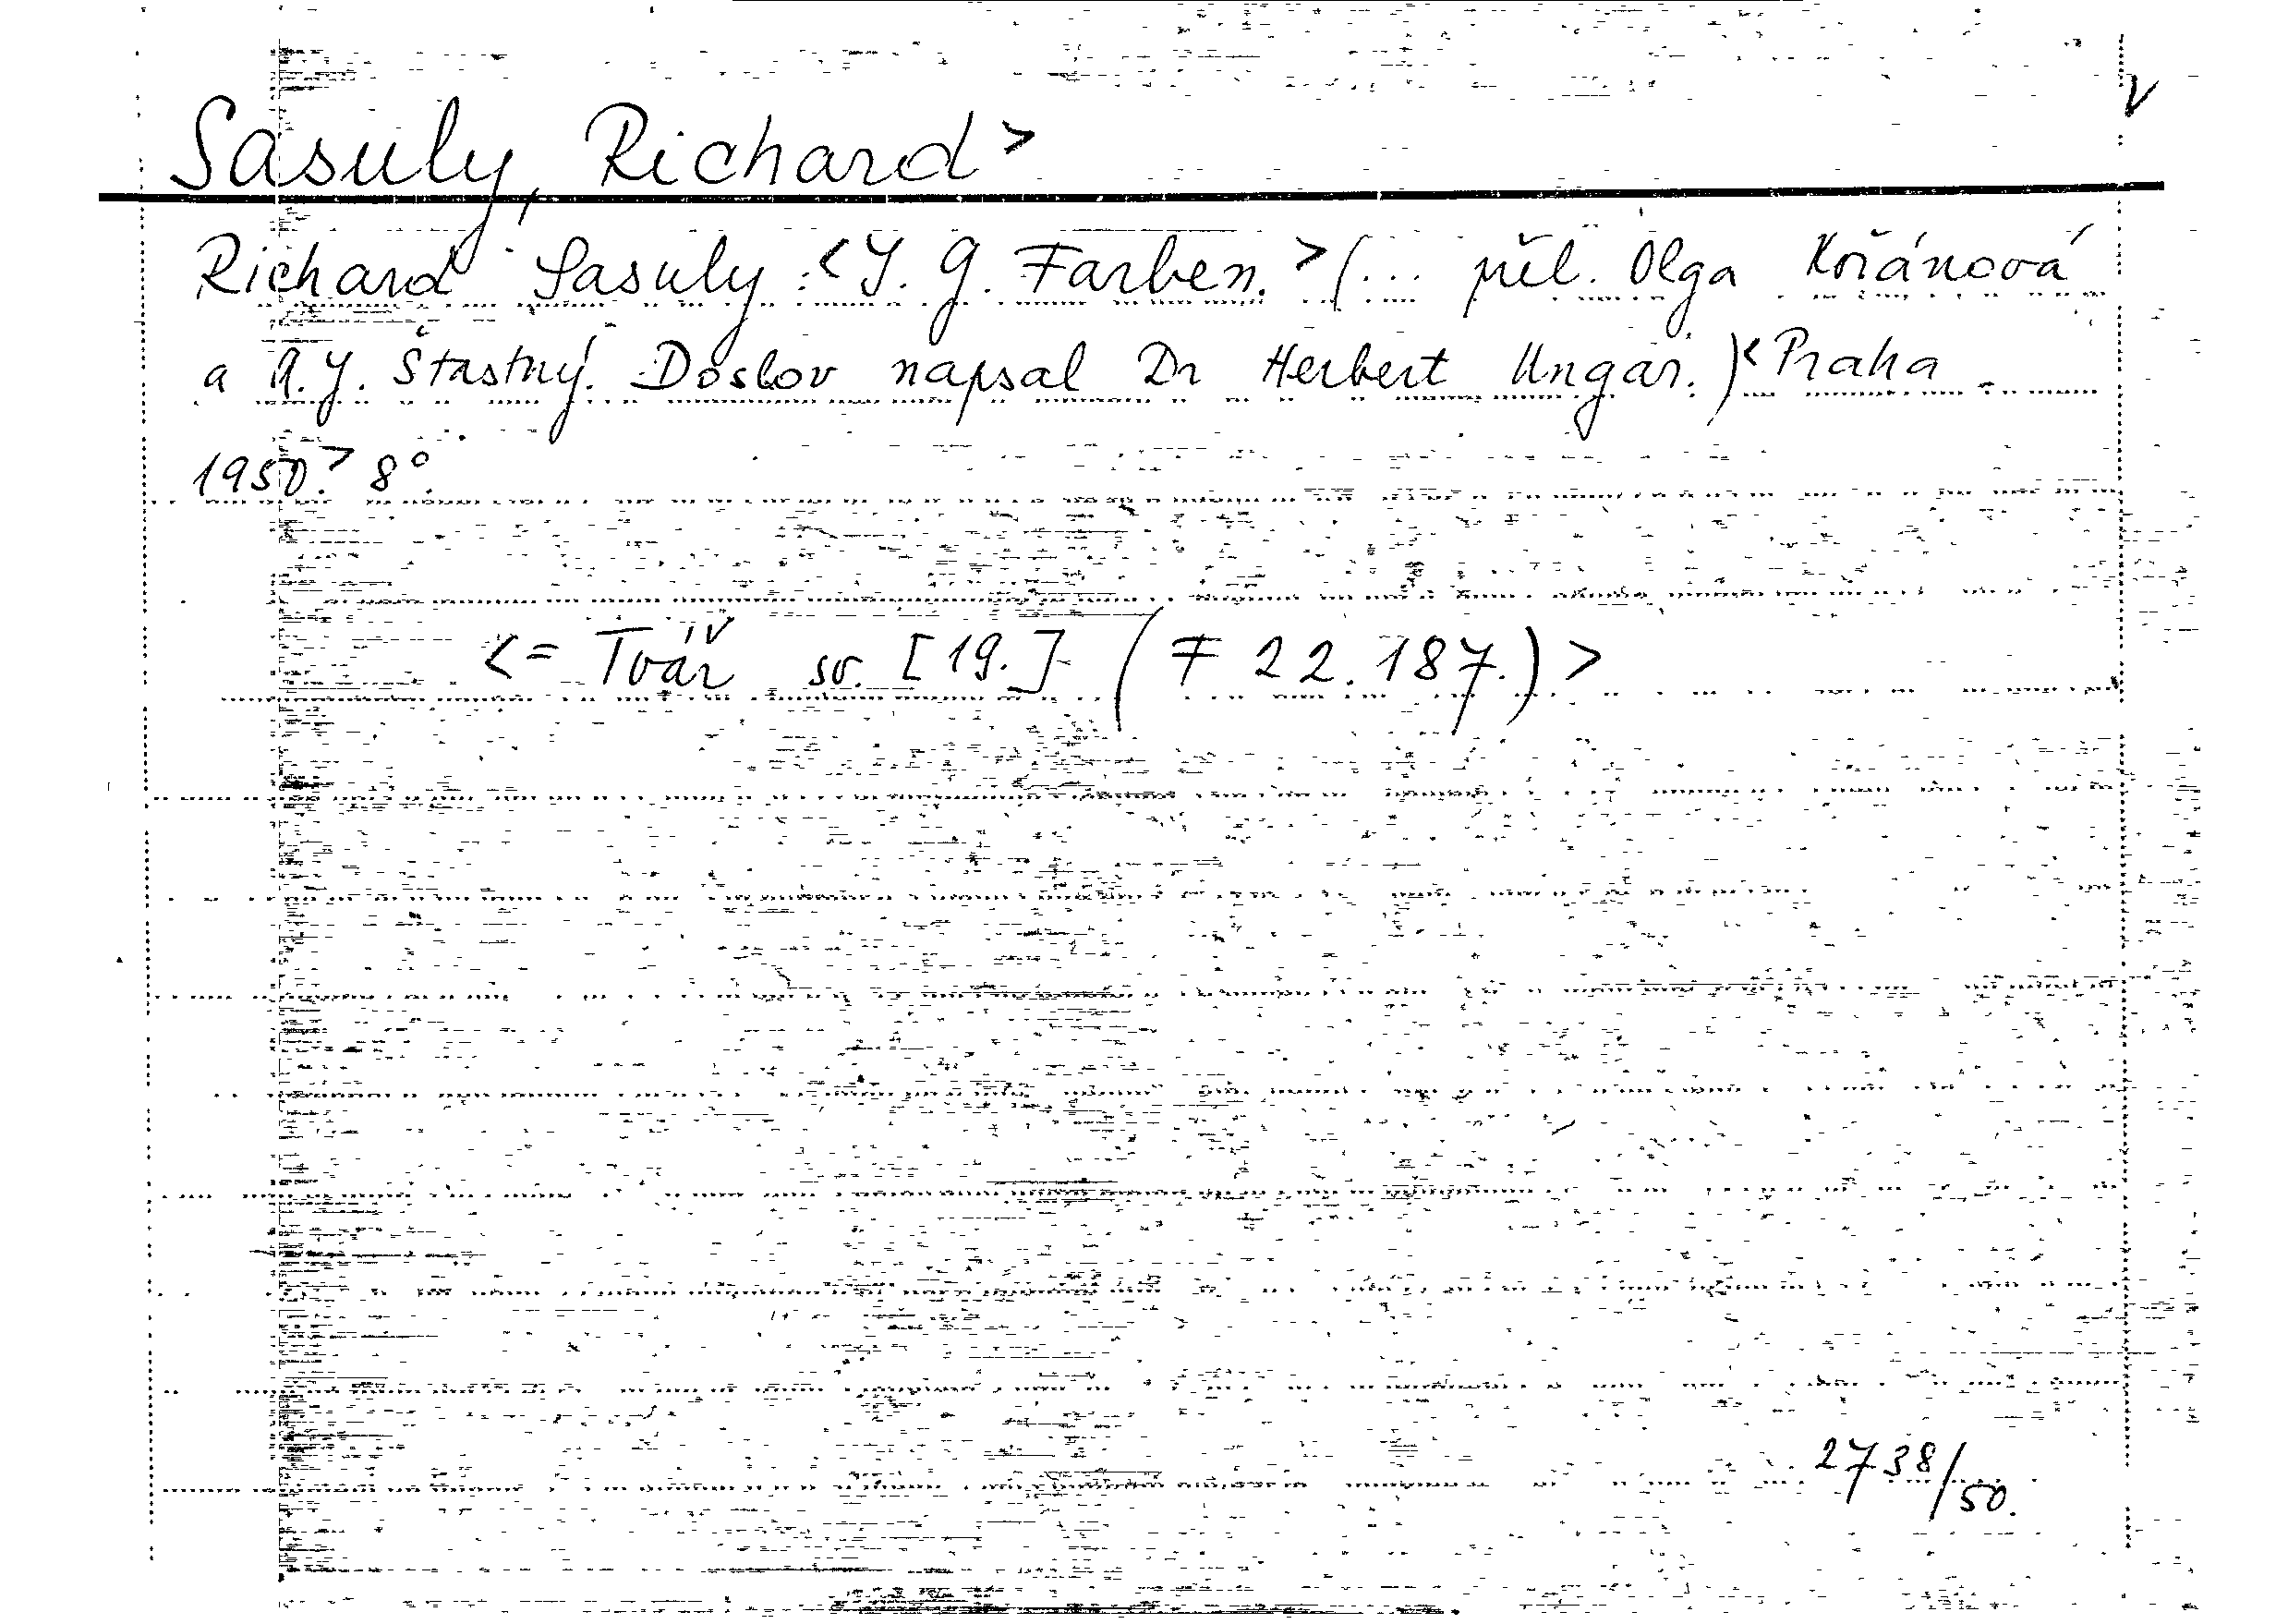 V
Sasuly, Richard>
Richard Sasuly: <I. G. Farben.> (... přel. Olga Kořánová
a A.J. Štastný. Doslov napsal Dr Herbert Ungar.) <Praha
1950.> 8°.
<= Tvář sv. [19.] (F 22.187.)>
2738/50.